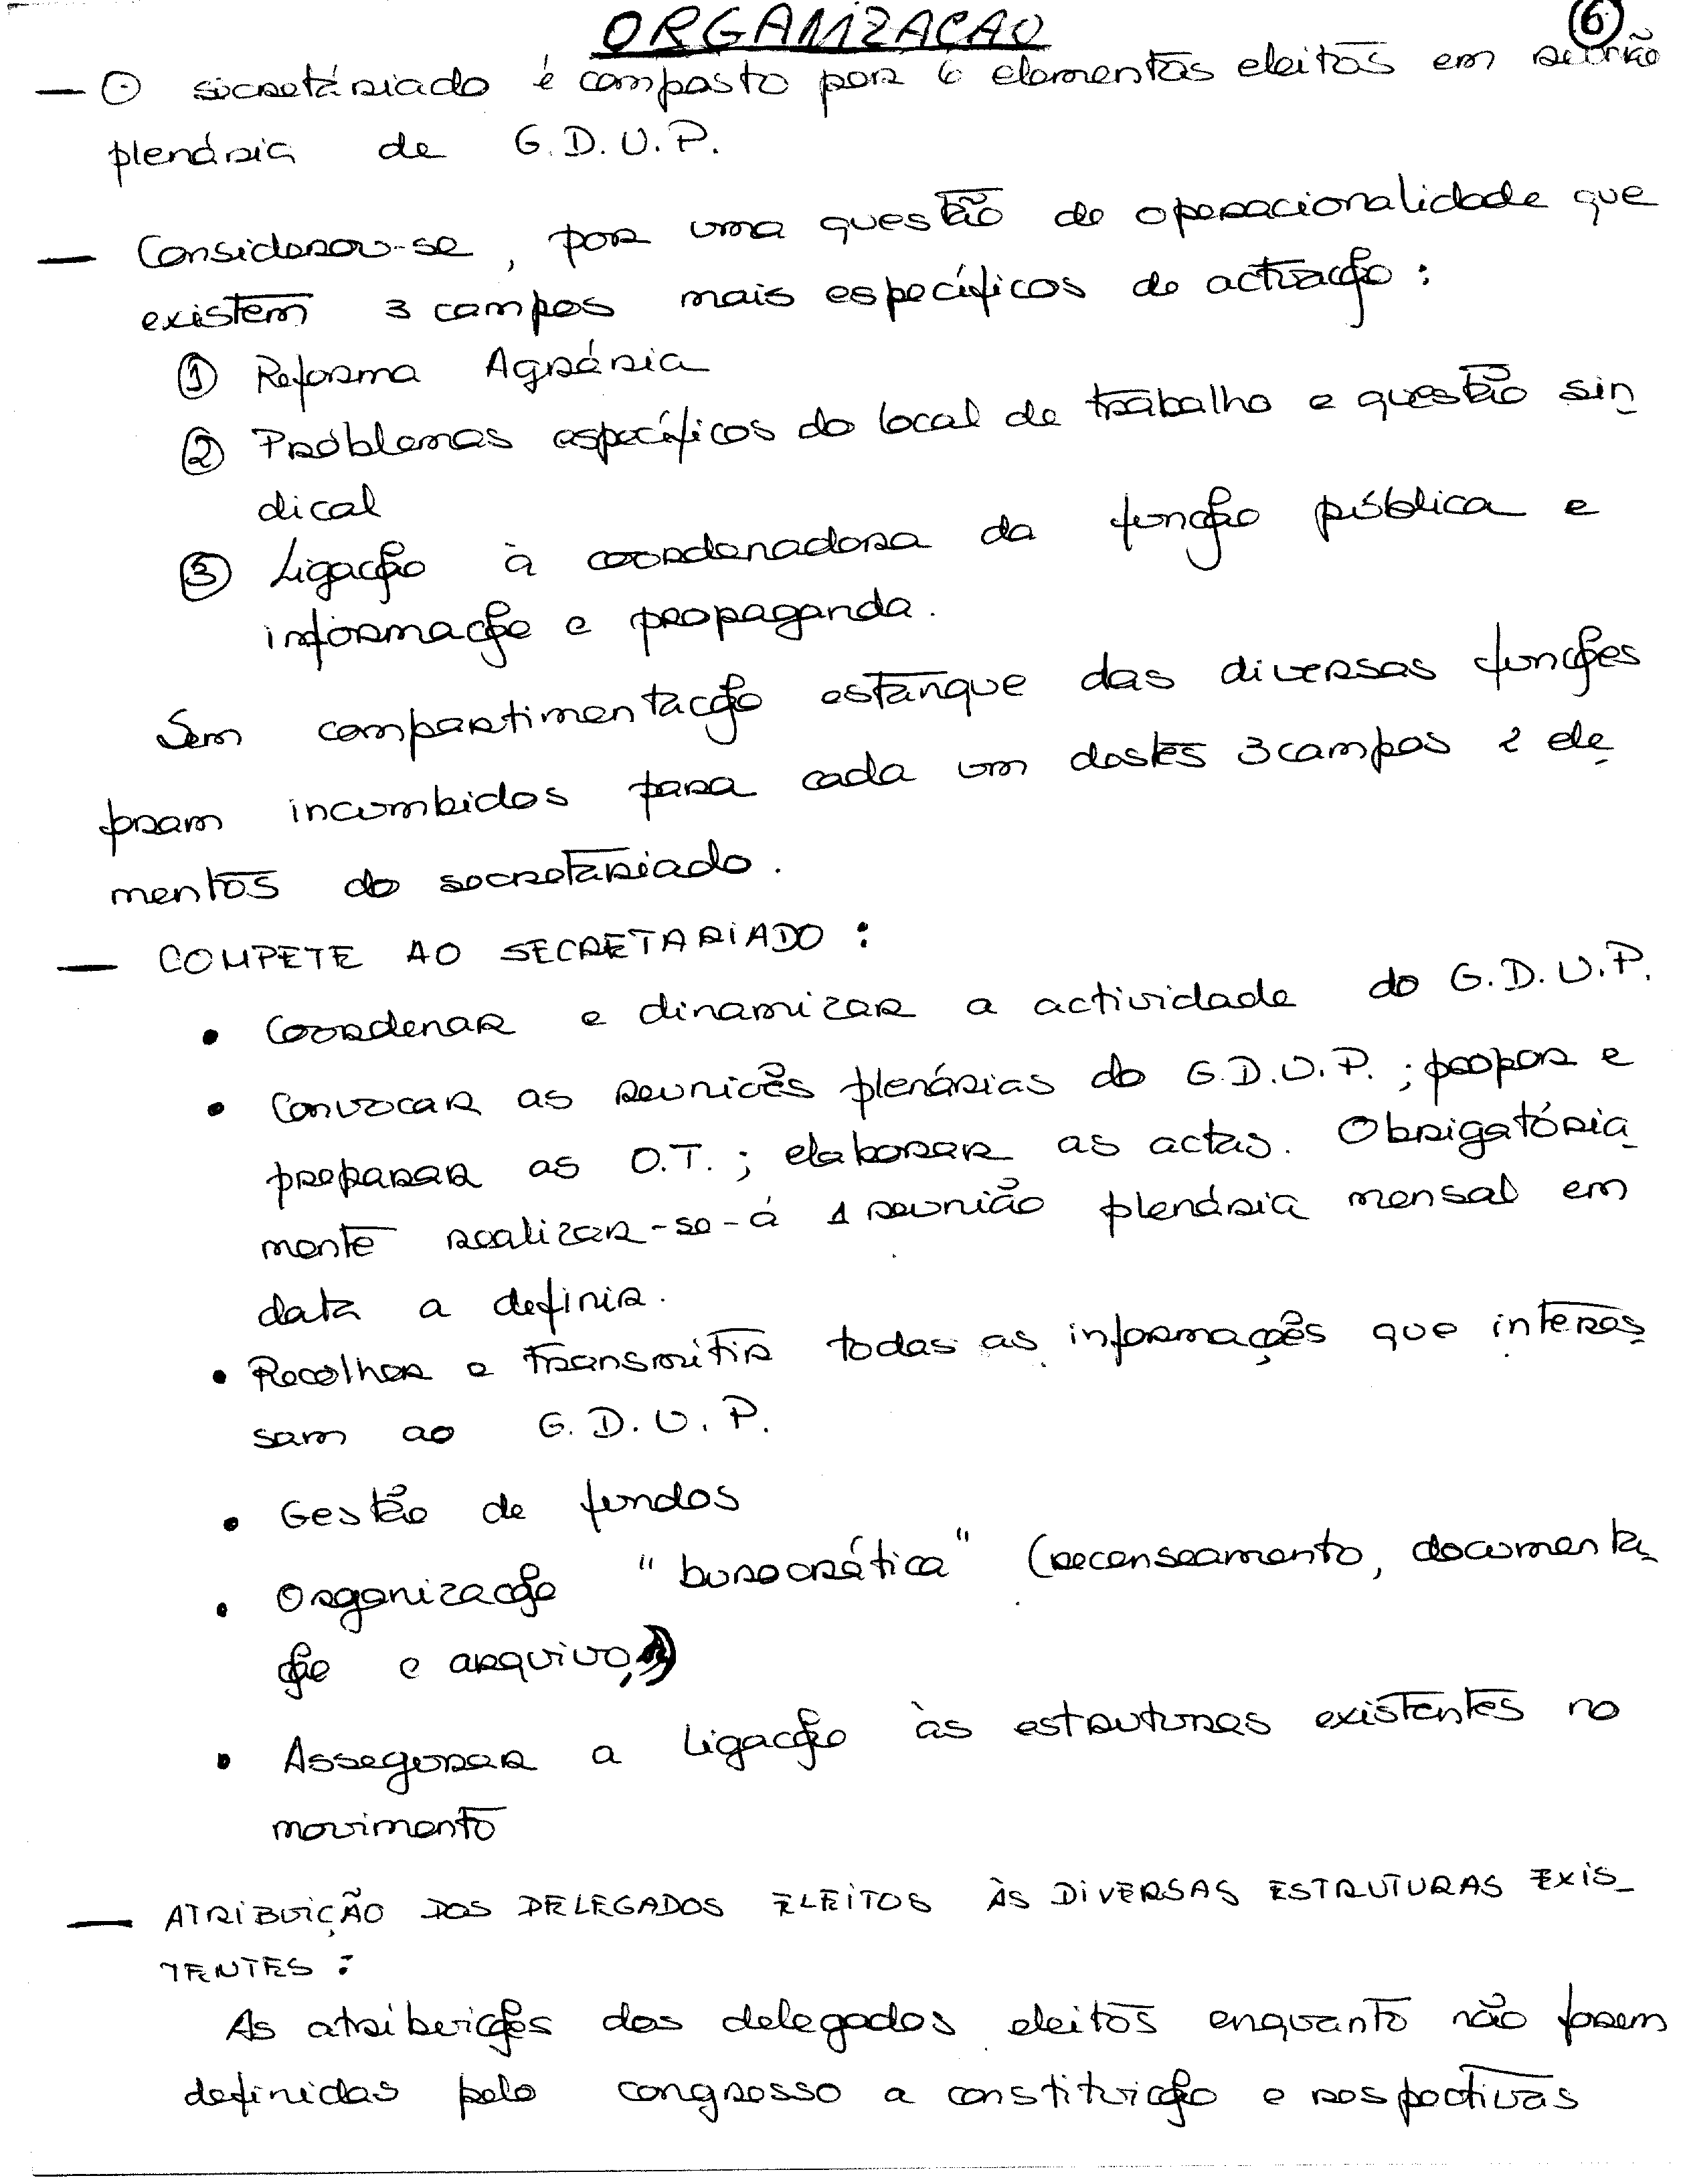 ORGANIZAÇAO
6
— O secretáriado é composto por 6 elementos eleitos em reunião
plenária de G.D.U.P.
— Considerou-se, por uma questão de operacionalidade que
existem 3 campos mais específicos de actuação:
① Reforma Agrária
② Problemas específicos do local de trabalho e questão sin
dical
③ Ligação à coordenadora da função pública e
informação e propaganda.
Sem compartimentação estanque das diversas funções
foram incumbidos para cada um destes 3 campos 2 ele
mentos do secretariado.
— COMPETE AO SECRETARIADO:
• Coordenar e dinamizar a actividade do G.D.U.P.
• Convocar as reuniões plenárias do G.D.U.P.; propor e
preparar as O.T.; elaborar as actas. Obrigatória
mente realizar-se-á 1 reunião plenária mensal em
data a definir.
• Recolher e transmitir todas as informações que interes
sam ao G.D.U.P.
• Gestão de fundos
• Organização "burocrática" (recenseamento, documenta
ção e arquivo,)
• Assegurar a ligação às estruturas existentes no
movimento
— ATRIBUIÇÃO DOS DELEGADOS ELEITOS ÀS DIVERSAS ESTRUTURAS EXIS_
TENTES:
As atribuições dos delegados eleitos enquanto não forem
definidas pelo congresso a constituição e respectivas